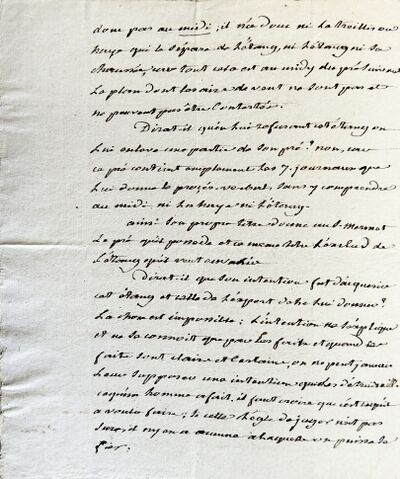 donc pas au midi; il n'a donc ni la treille ou
haye qui le separe de l'étang, ni l'étang ni sa
chaussée, car tout cela est au midy du pré suivant
le plan dont les aire de vent ne sont pas et
ne peuvent pas être contestés.
Dirat-il qu'en lui refusant cet étang on
lui enleve une partie de son pré? non, car
ce pré contient amplement les 7. journaux que
lui donne le procès verbal, sans y comprendre
au midi ni la haye ni l'étang.
ainsi son propre titre donne au S.
le pré qu'il possede et ce meme titre l'exclud de
l'étang qu'il veut
Dirat-il que son intention fut d'acquerir
cet étang et celle de l'expert de le lui donner?
la chose est impossible; l'intention ne s'explique
et ne se connoit que par les faits et quand les
faits sont clairs et certains, on ne peut jamais
leur supposer une intention qui les détruise
ce qu'un homme a fait, il faut croire que c'est ce qu'il
a voulu faire; si cette régle de juger n'est pas
sure, il n'y en a aucune a laquelle on puisse se
fier.